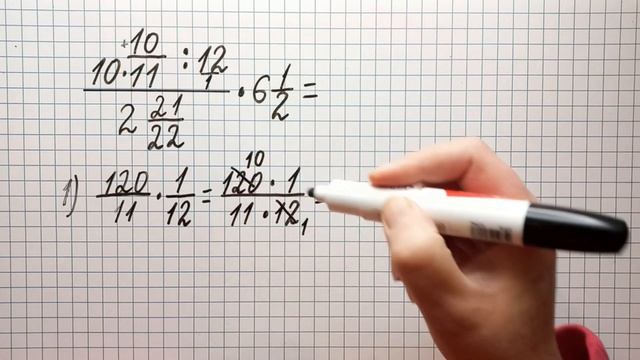 +10
10·11 : 12/1
2 21/22 · 6 1/2 =
10
1) 120/11 · 1/12 = 120·1/11·12 =
1